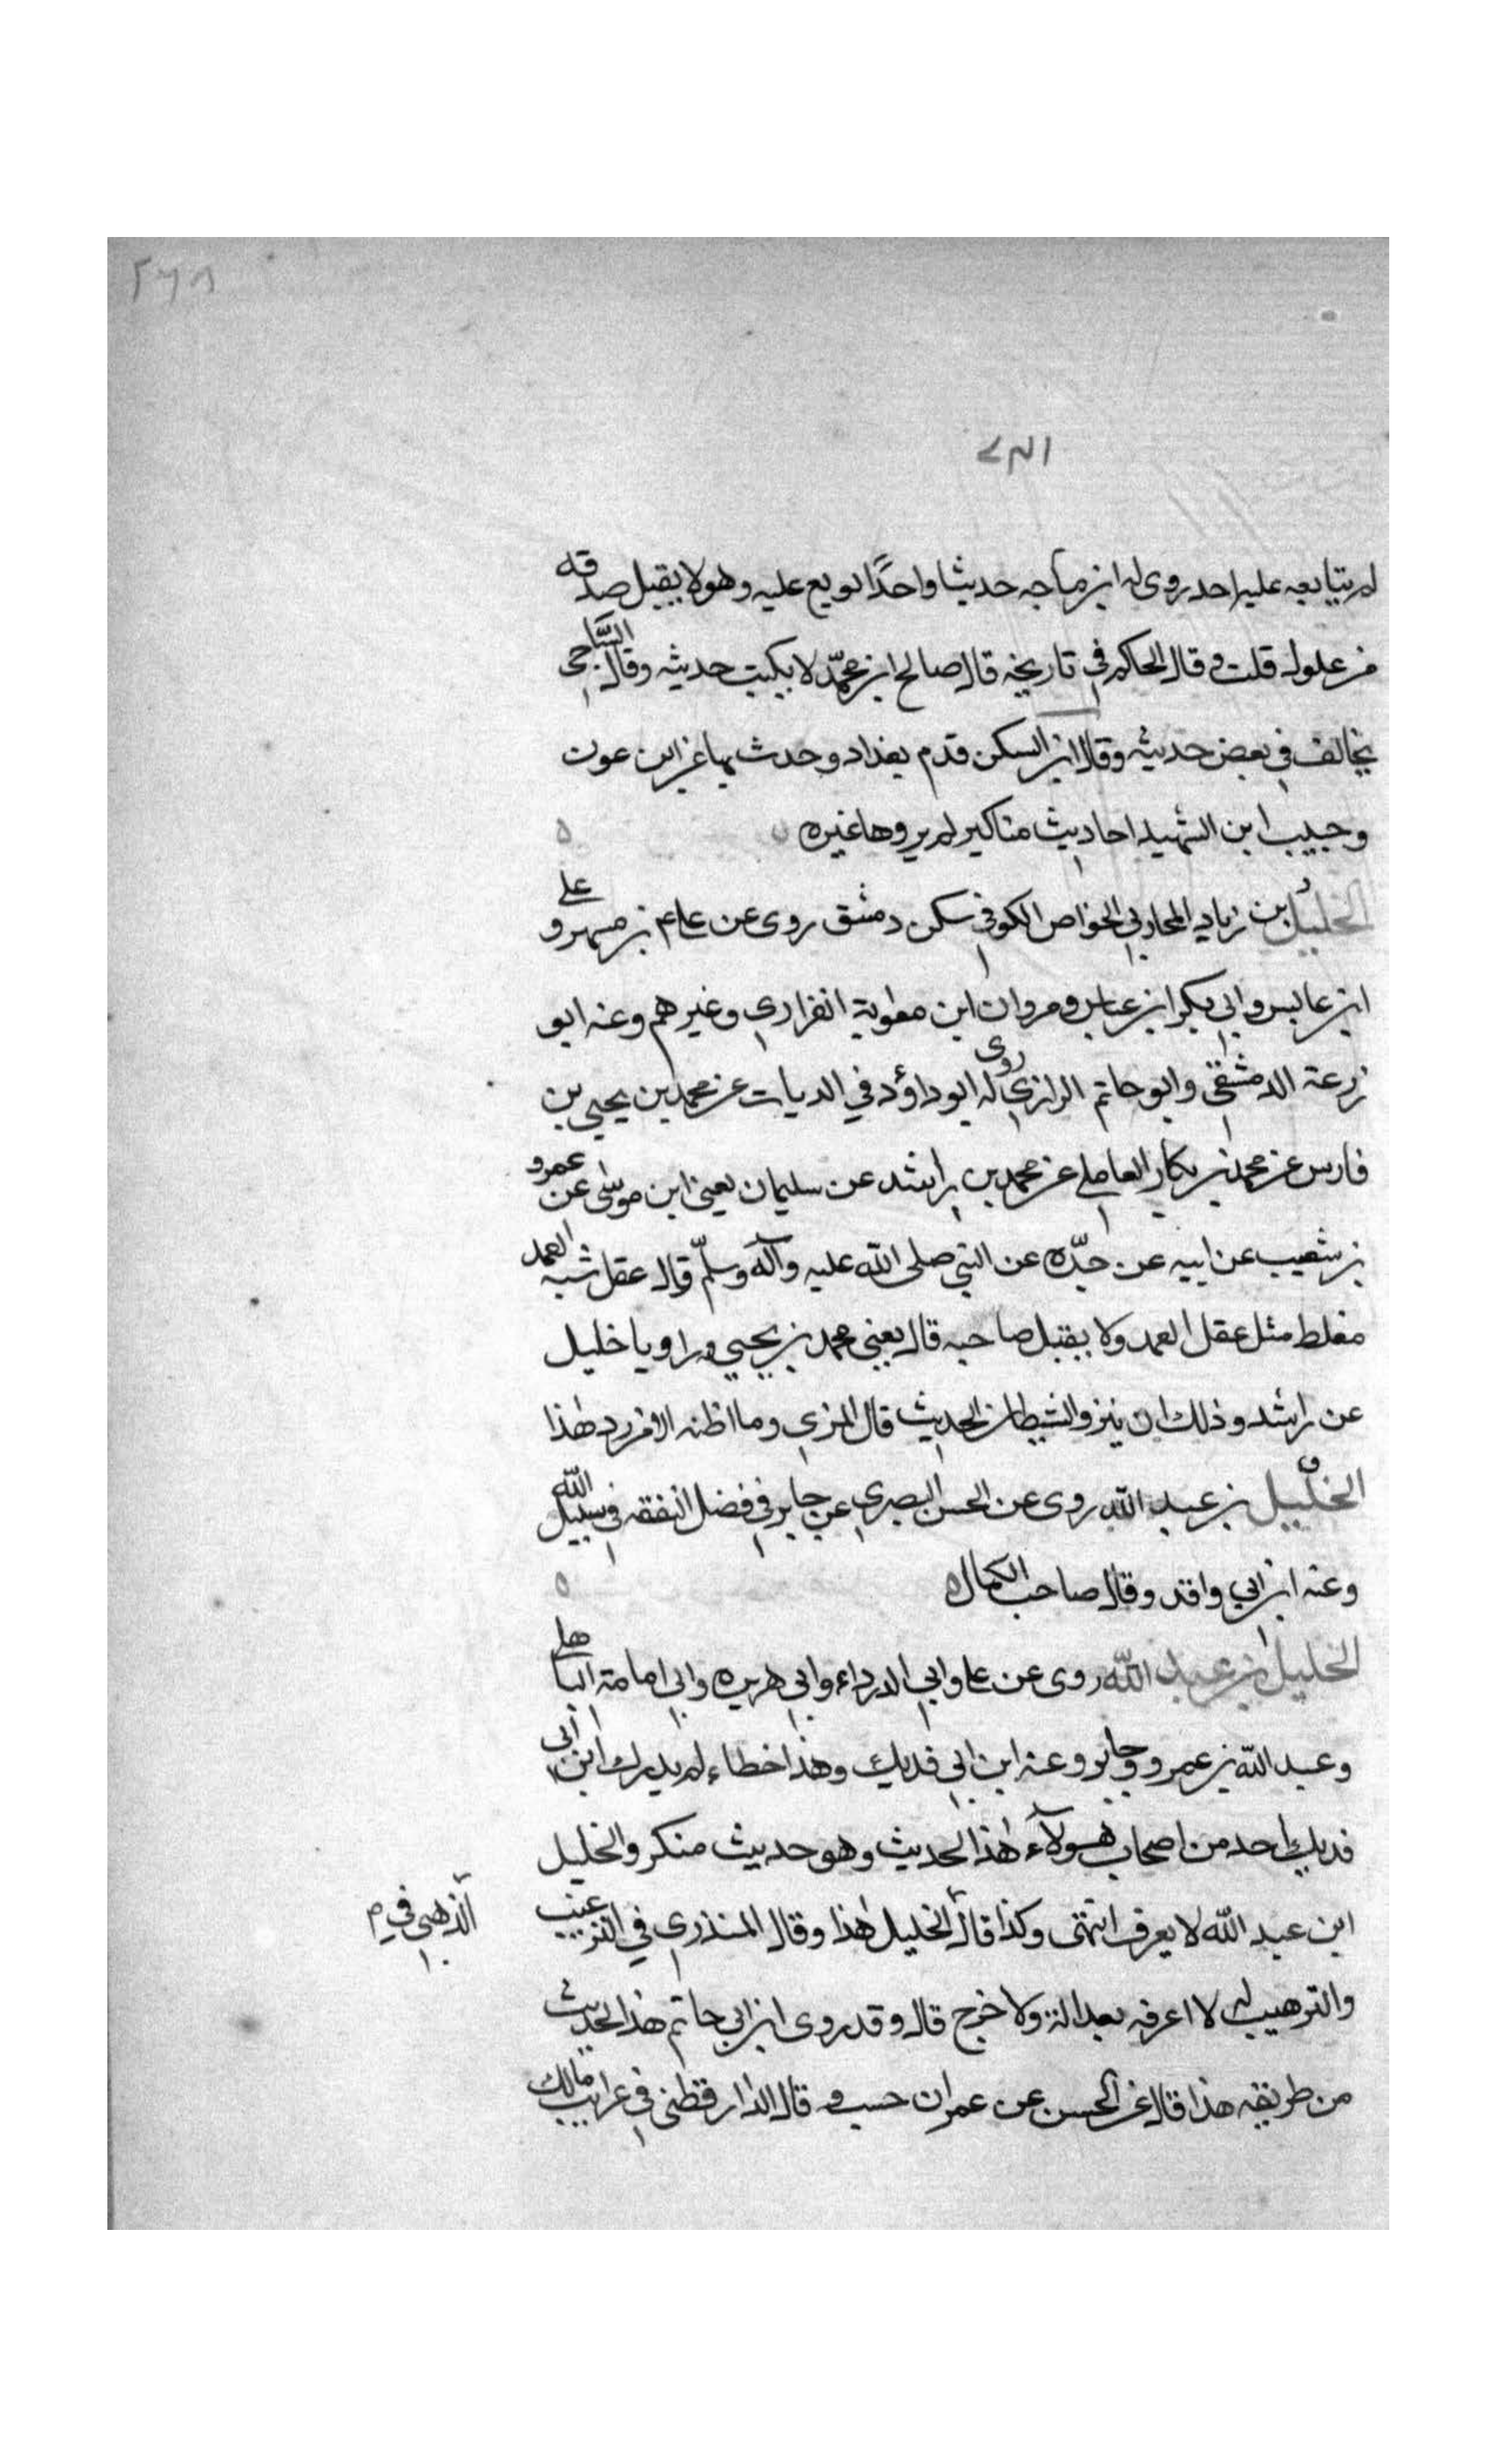 ٢٦٨
لم يتابعه عليه احد روى له ابن ماجه حديثا واحدًا لو بع عليه وهو لا يقبل صدقه
من غلول قلت و قال الحاكم في تاريخه قال صالح ابن محمّد لا يكتب حديثه وقال السَّاجى
يخالف في بعض حديثه وقال ابن السكن قدم بغداد وحدث بها عن ابن عون
وحبيب ابن الشهيد احاديث مناكير لم يروها غيره
الخليل بن زياد المحاربي الخواص الكوفي سكن دمشق روى عن علي بن مسهر و
ابن عابس وابي بكر ابن عياش ومروان ابن معوية الفزاري وغيرهم وعنه ابو
زرعة الدمشقي وابو حاتم الرازي روى له ابو داؤد في الديات عن محمد بن يحيى بن
فارس عن محمد بن بكار العاملي عن محمد بن راشد عن سليمان يعني ابن موسى عن عمرو
بن شعيب عن ابيه عن جدّه عن النبي صلى الله عليه وآله وسلّم قال عقل شبه العمد
مغلط مثل عقل العمد ولا يقتل صاحبه قال يعني محمد بن يحيى وزاديا خليل
عن راشد وذلك ان ينزو الشيطان الحديث قال المزي وما اظنه الا فرد هذا
الخليل بن عبد الله روى عن الحسن البصري عن جابر في فضل النفقه في سبيل الله
وعنه ابن ابي واقد وقال صاحب الكمال
الخليل بن عبد الله روى عن علي وابي الدرداء وابي هريره وابي امامة الباهلي
وعبد الله بن عمرو وجابر وعنه ابن ابي فديك وهذا خطاء لم يدرك ابن ابي
فديك احد من اصحاب هؤلآء هذا الحديث وهو حديث منكر والخليل
ابن عبد الله لا يعرف انتهى وكذا قال الخليل هذا وقال المنذري في الترغيب
الذهبي في م
والترهيب له لا اعرفه بعدالة ولا خرج قال وقد روى ابن ابي حاتم هذا الحديث
من طريقه هذا قال عن الحسن عن عمران حسب و قال الدارقطني في غرايب مالك